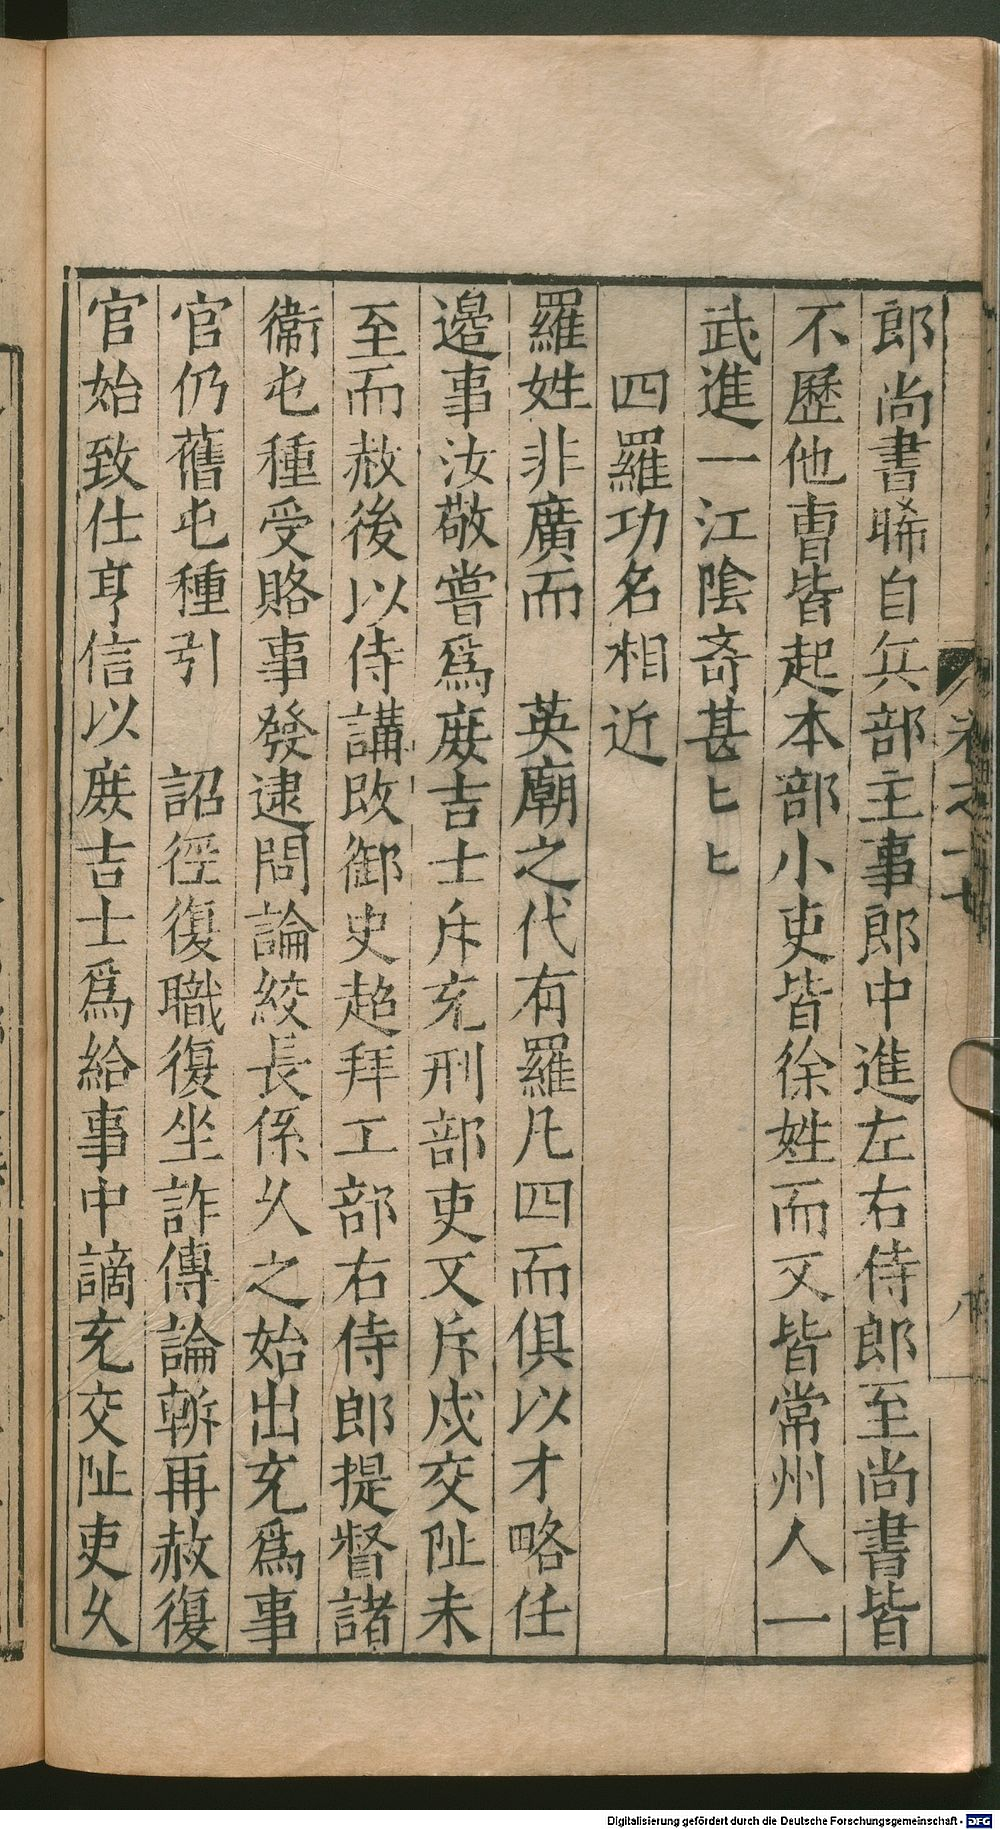 卷之十七
郎尚書晞自兵部主事郎中進左右侍郎至尚書皆
不歷他曺皆起本部小吏皆徐姓而又皆常州人一
武進一江陰竒甚〻〻
四羅功名相近
羅姓非廣而　英廟之代有羅凡四而俱以才略任
邉事汝敬嘗爲庻吉士斥充刑部吏又斥戍交阯未
至而赦後以侍講改御史超拜工部右侍郎提督諸
衞屯種受賂事發逮問論絞長係久之始出充爲事
官仍舊屯種引　詔徑復職復坐詐傳論斬再赦復
官始致仕亨信以庻吉士爲給事中謫充交阯吏久
Digitalisierung gefördert durch die Deutsche Forschungsgemeinschaft - DFG